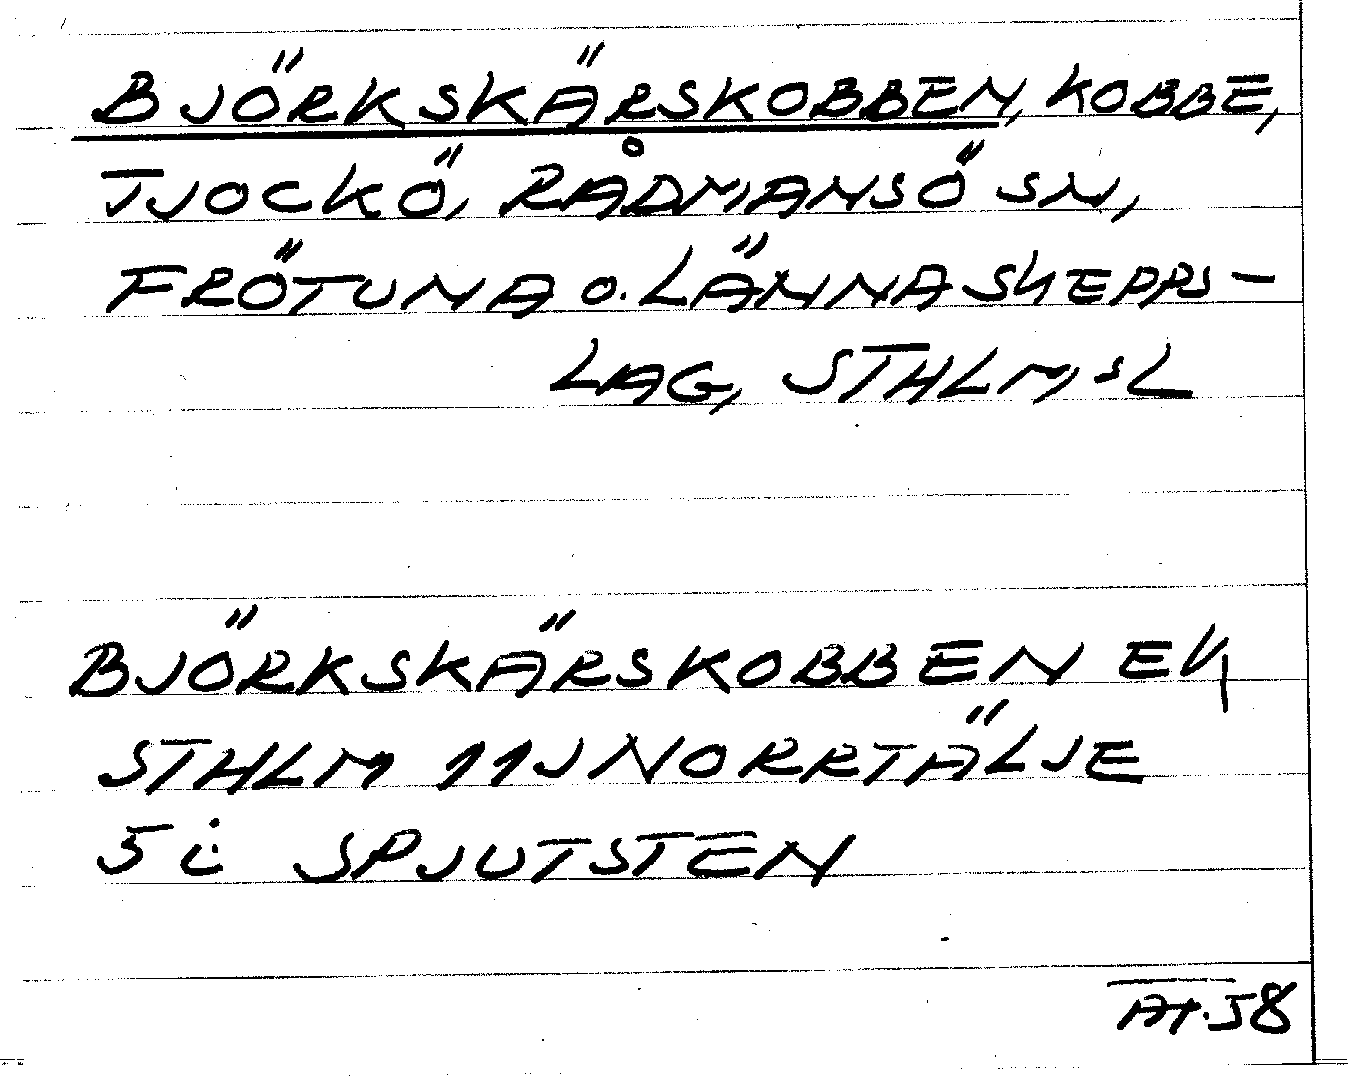 BJÖRKSKÄRSKOBBEN, KOBBE,
TJOCKÖ, RÅDMANSÖ SN,
FRÖTUNA O. LÄNNA SKEPPS-
LAG, STHLM, SL
BJÖRKSKÄRSKOBBEN EK,
STHLM 11J NORRTÄLJE
5 i SPJUTSTEN
58